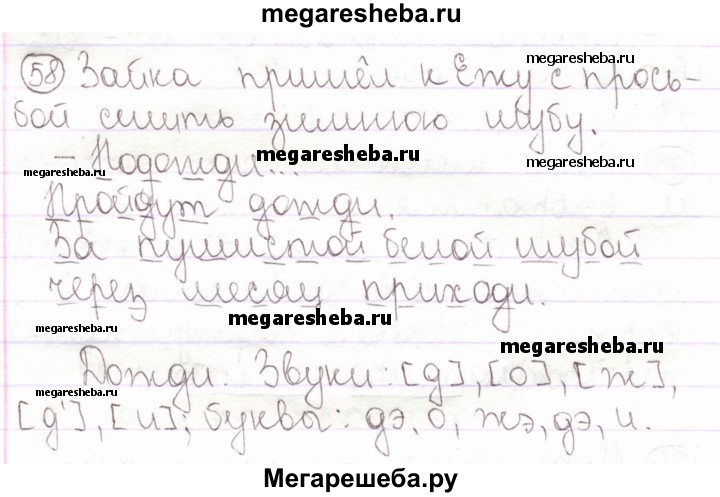 megaresheba.ru
58 Зайка пришёл к Ежу с прось-
megaresheba.ru
бой сшить зимнюю шубу.
megaresheba.ru
– Подожди...
megaresheba.ru
megaresheba.ru
Пройдут дожди.
За пушистой белой шубой
через месяц приходи.
megaresheba.ru
megaresheba.ru
Дожди. Звуки: [д], [о], [ж],
megaresheba.ru
megaresheba.ru
[д'], [и]; буквы: дэ, о, жэ, дэ, и.
Мегарешеба.ру